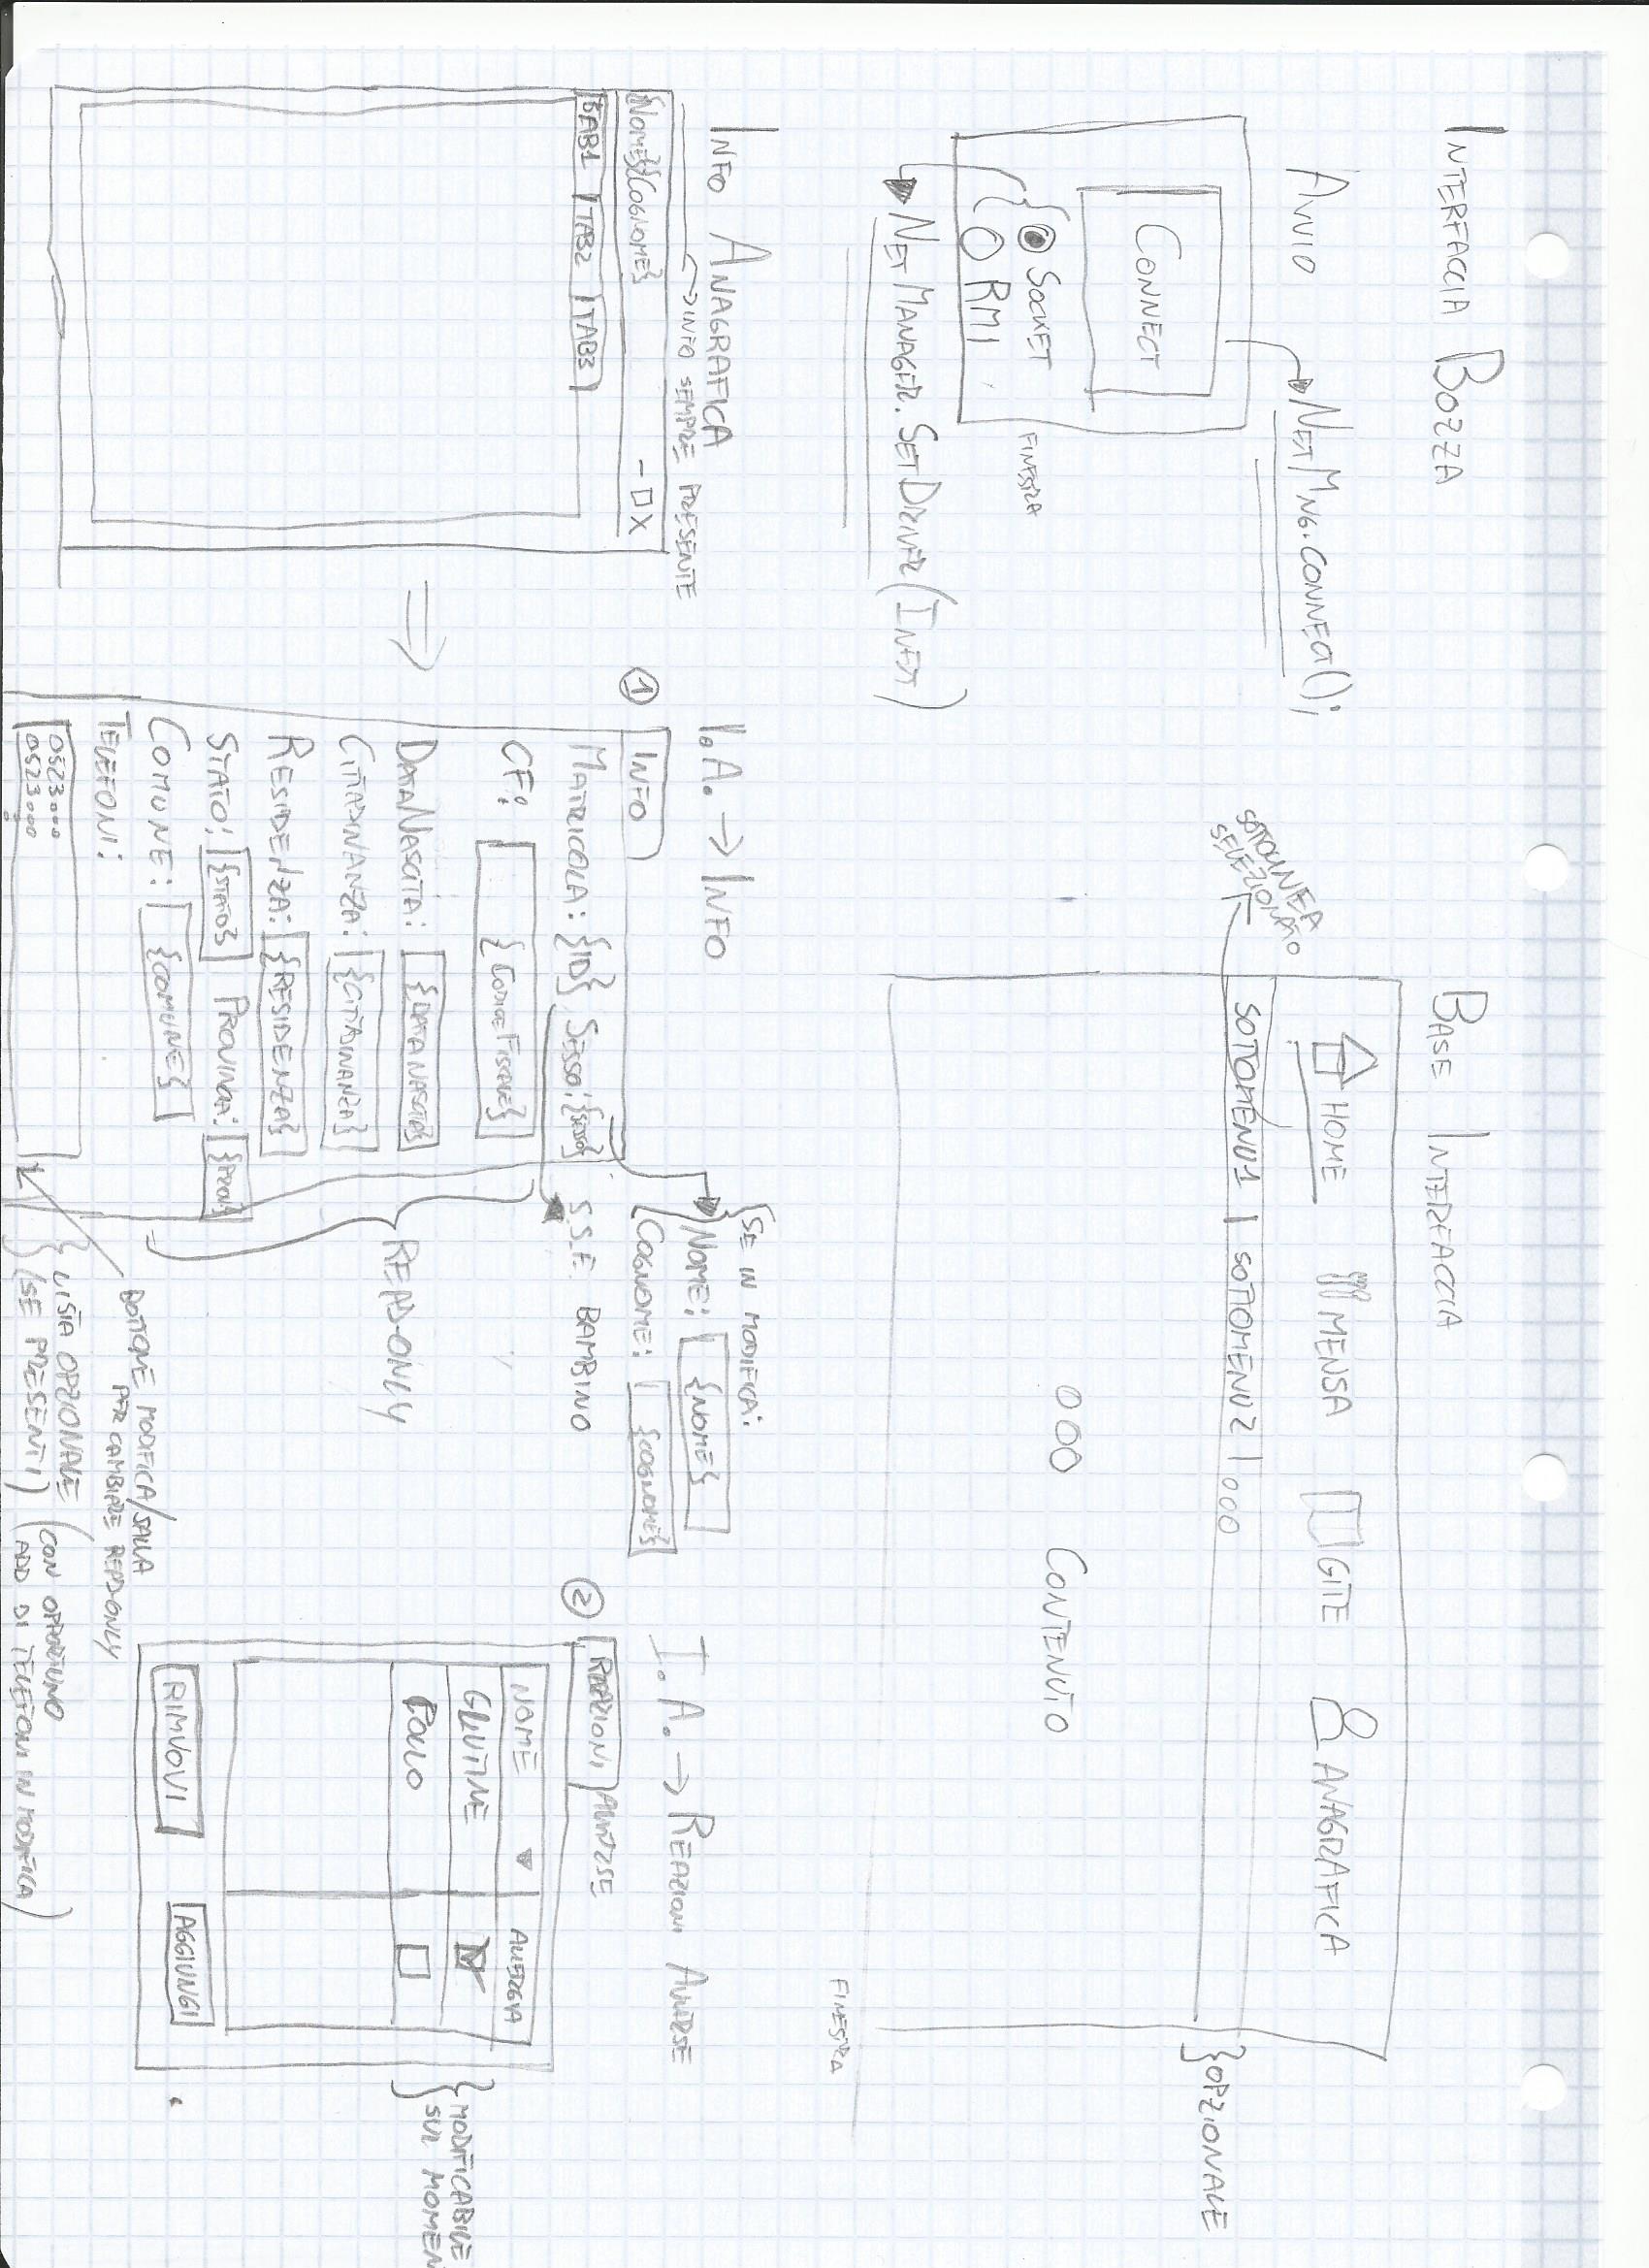 INTERFACCIA BOZZA
AVVIO
CONNECT
SOCKET
RMI
FINESTRA
NETMNG.CONNECT();
NETMANAGER.SETDRIVER(INET)
BASE INTERFACCIA
SOTTOLINEA
SELEZIONATO
HOME
MENSA
GITE
ANAGRAFICA
SOTTOMENU1 | SOTTOMENU2 | 000
} OPZIONALE
000 CONTENUTO
FINESTRA
INFO ANAGRAFICA
INFO SEMPRE PRESENTE
{NOME}{COGNOME} - □ X
TAB1 TAB2 TAB3
I.A. → INFO
①
INFO
MATRICOLA: {ID} SESSO: {SESSO}
CF: {CODICEFISCALE}
DATANASCITA: {DATANASCITA}
CITTADINANZA: {CITTADINANZA}
RESIDENZA: {RESIDENZA}
STATO: {STATO} PROVINCIA: {PROV}
COMUNE: {COMUNE}
TELEFONI:
0523...
0523...
{SE IN MODIFICA:
NOME: {NOME}
COGNOME: {COGNOME}
S.S.E. BAMBINO
READONLY
BOTTONE MODIFICA/SALVA
PER CAMBIARE READONLY
LISTA OPZIONALE
(SE PRESENTI)
(CON OPPORTUNO
ADD DI TELEFONI IN MODIFICA)
I.A. → REAZIONI AVVERSE
②
REAZIONI AVVERSE
NOME ALLERGIA
GLUTINE
POLLO
RIMUOVI AGGIUNGI
MODIFICABILE
SUL MOMEN